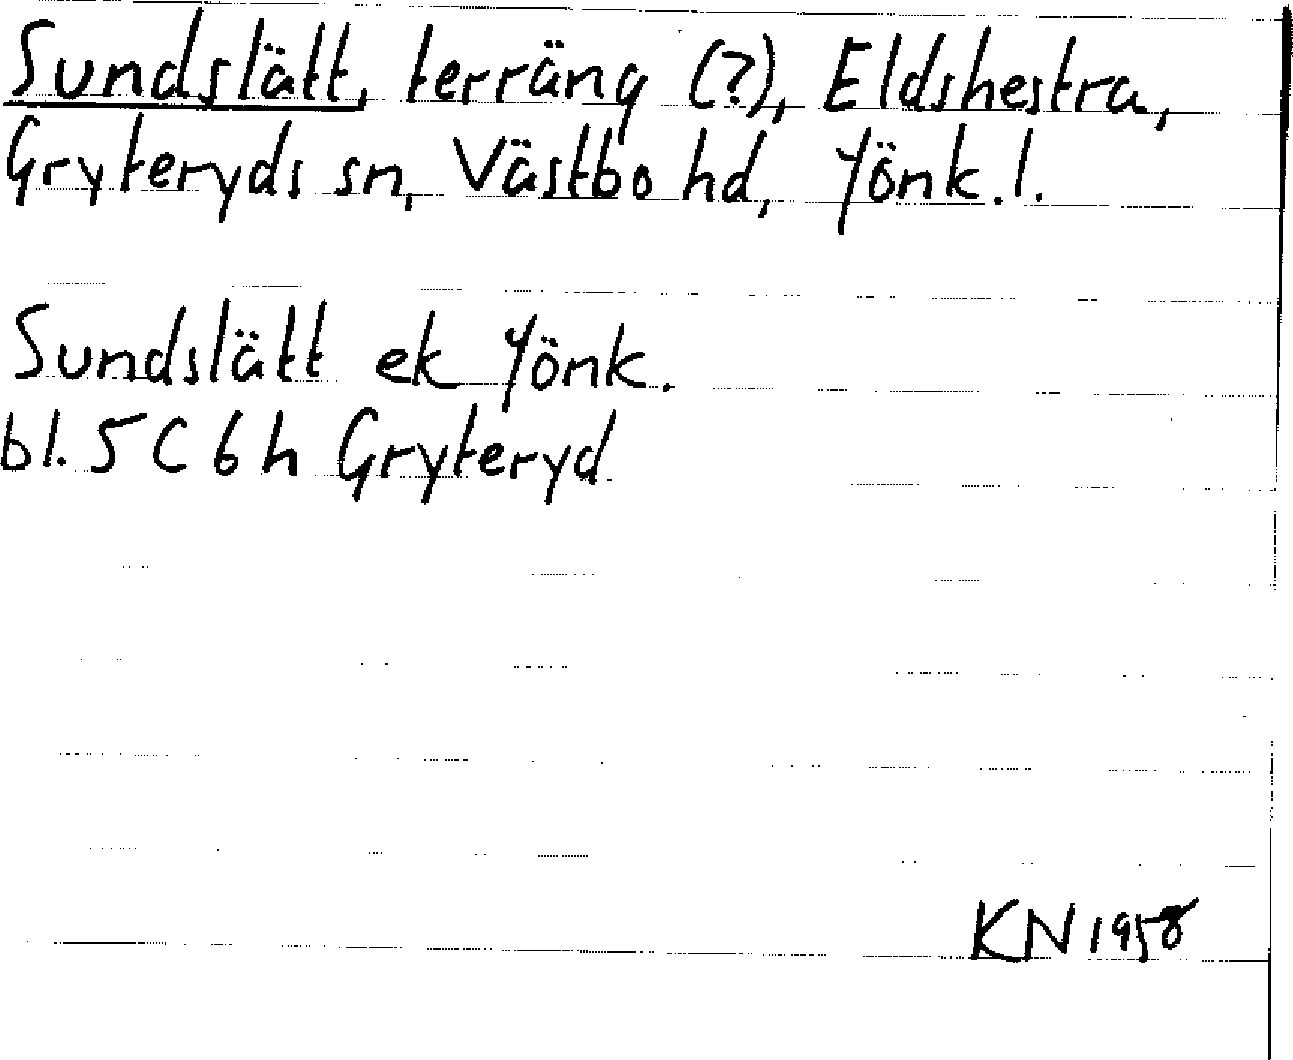 Sundslätt, terräng (?), Eldshestra,
Gryteryds sn, Västbo hd, Jönk. l.
Sundslätt ek Jönk.
bl. 5 C 6 h Gryteryd
KN 1958